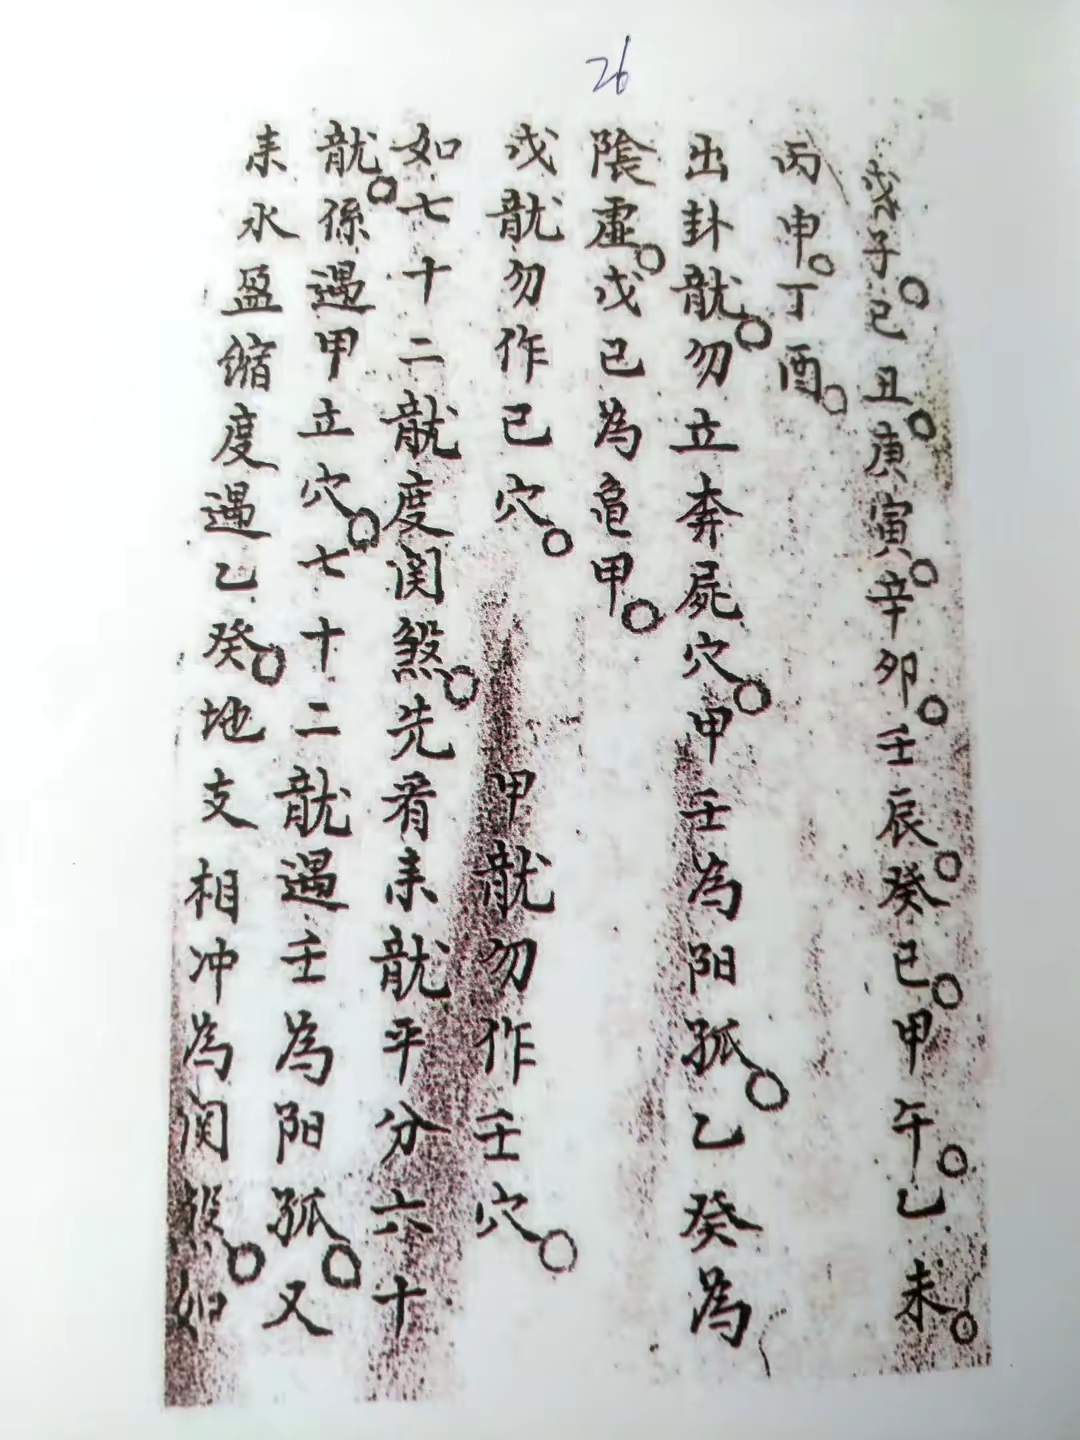 26
戊子。己丑。庚寅。辛卯。壬辰。癸巳。甲午。乙未。
丙申。丁酉。
出卦龍。勿立奔屍穴。甲壬為阳孤。乙癸為
陰虛。戊己為龟甲。
戊龍勿作己穴。 甲龍勿作壬穴。
如七十二龍度関煞。先看来龍平分六十
龍。係遇甲立穴。七十二龍遇壬為阳孤。又
来水盈缩度遇乙癸。地支相冲為関煞。如